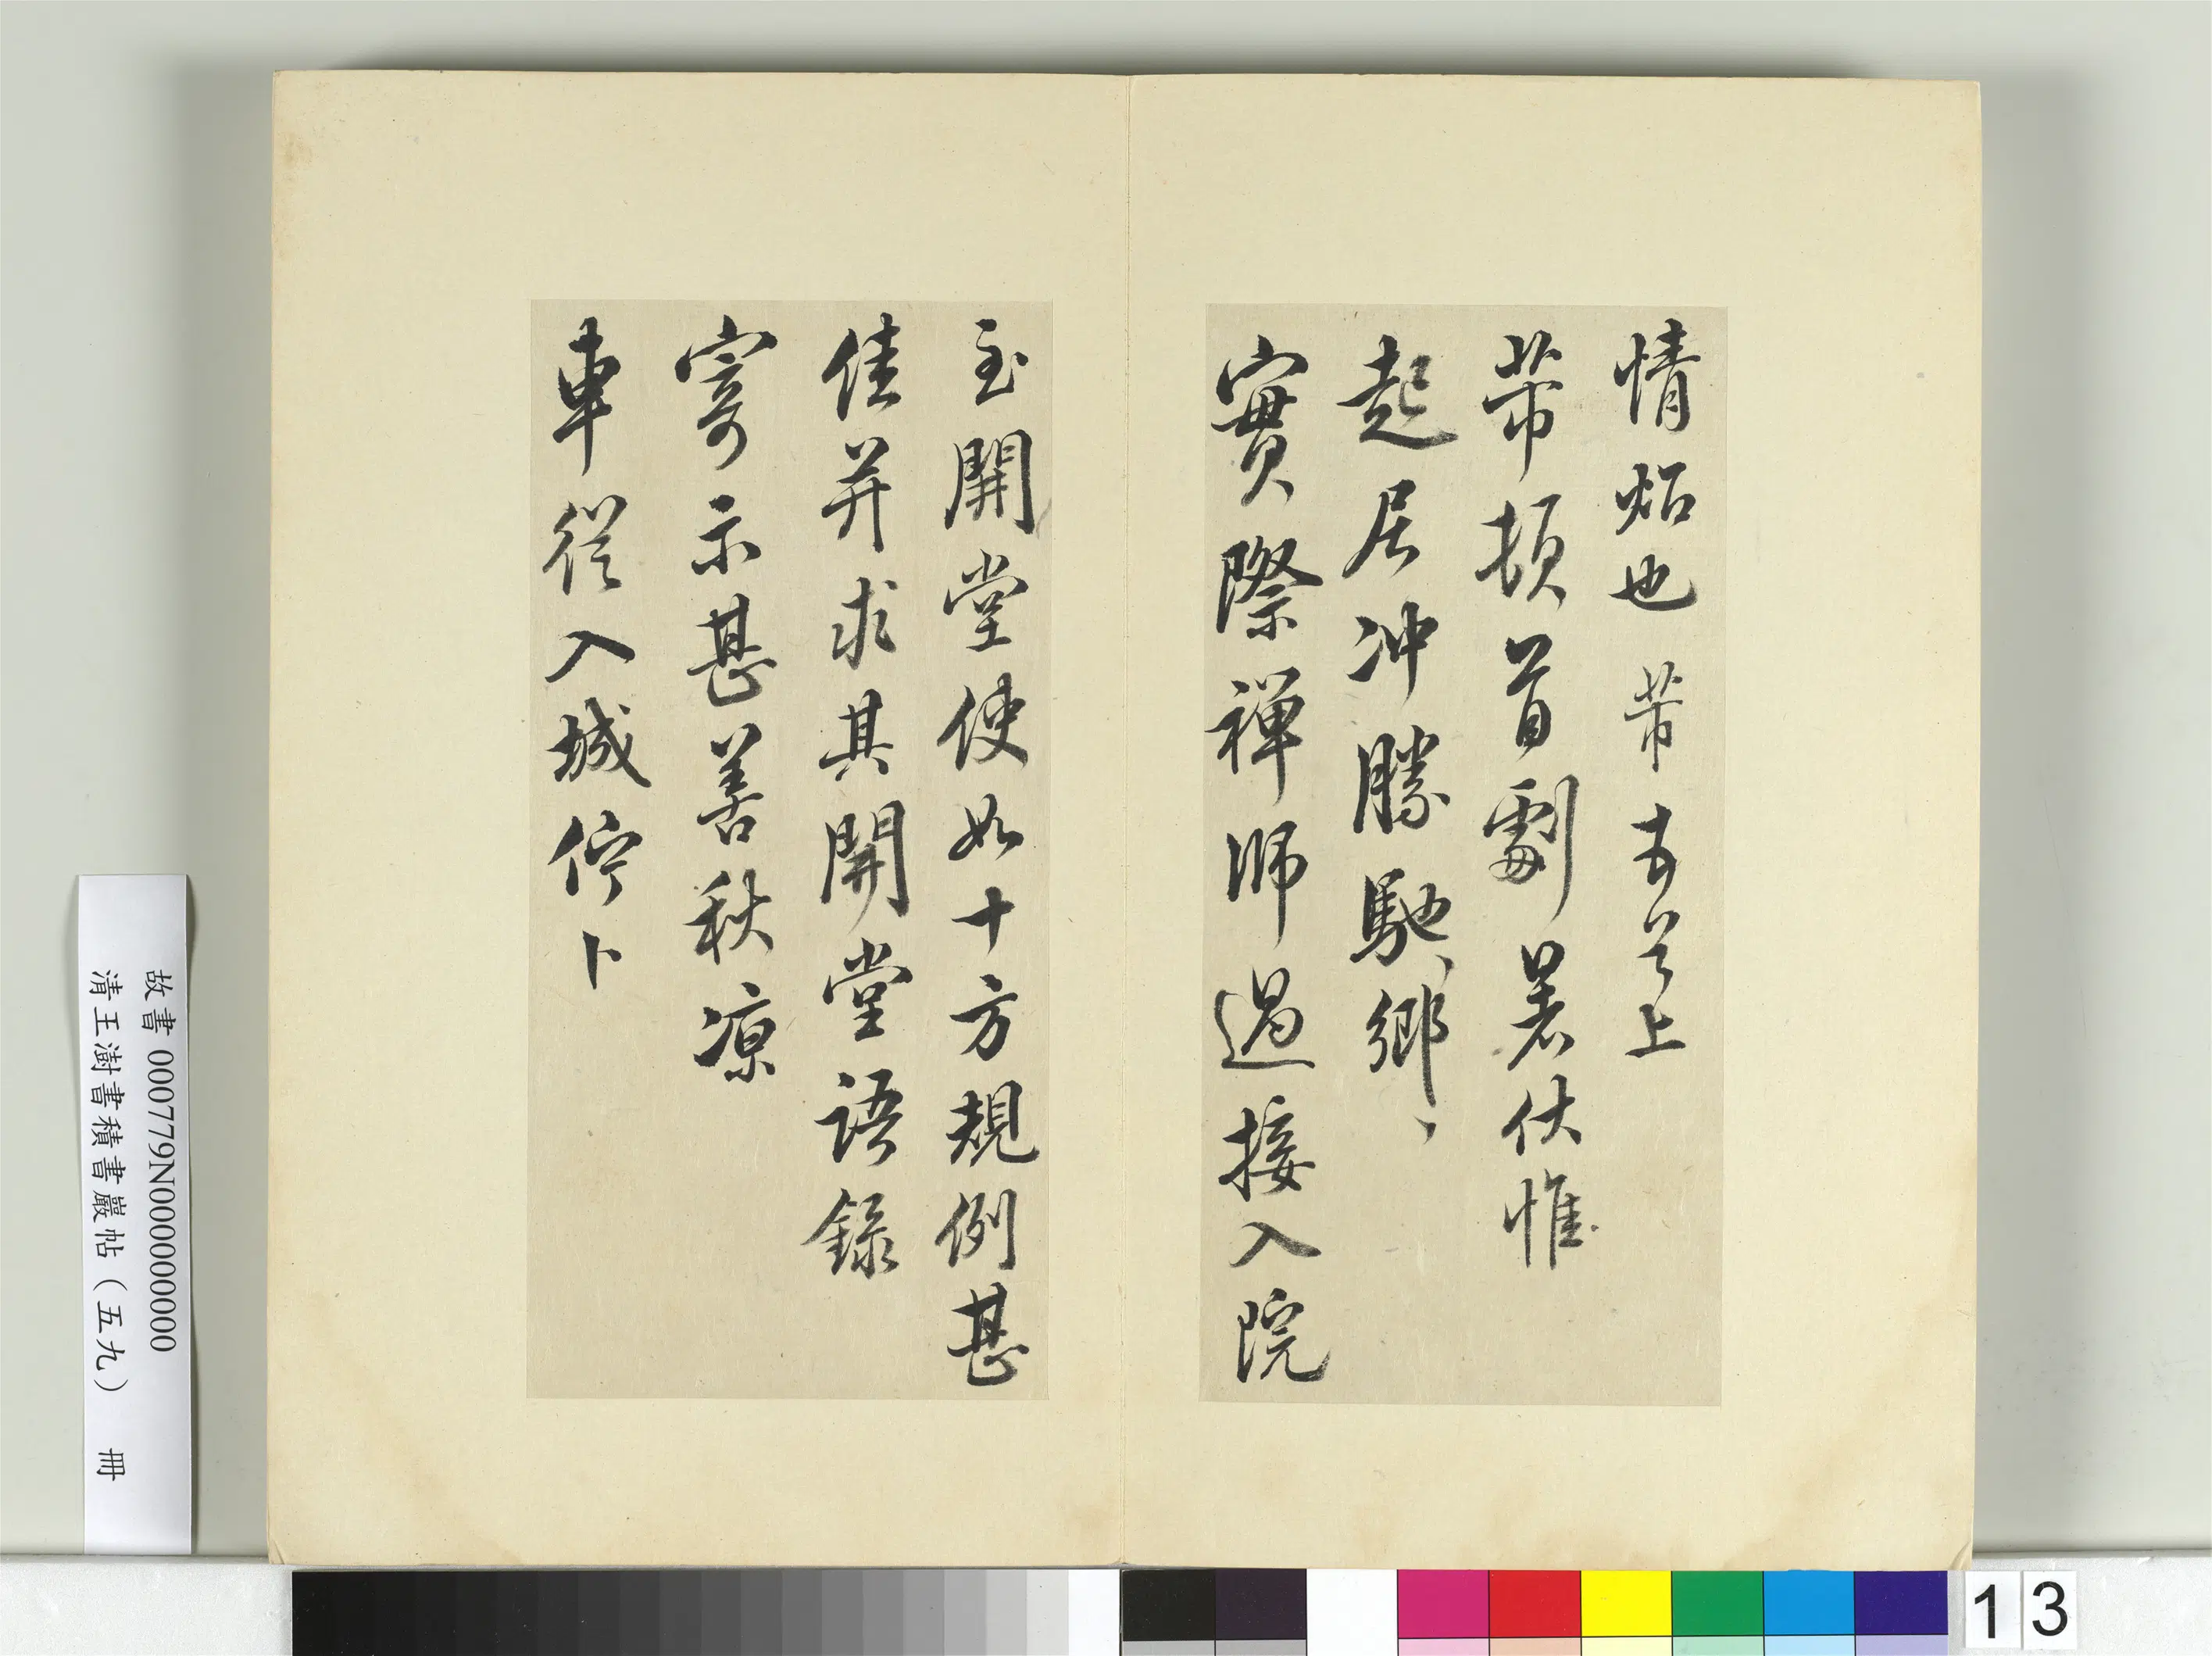 情炤也 芾 出 上
芾頓首劇暑伏惟
起居沖勝馳馳鄉鄉
實際禪師過接入院
至開堂使如十方規例甚
佳并求其開堂語錄
寄示甚善秋凉
車從入城佇卜
故書 000779N000000000
清王澍書積書巖帖（五九） 冊
13